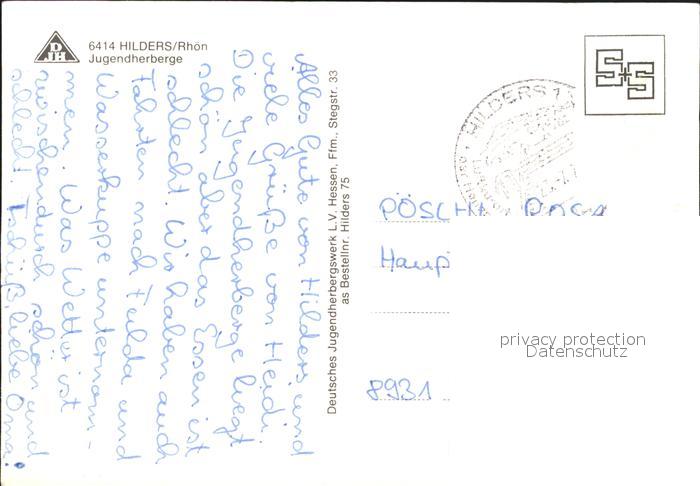 DJH
6414 HILDERS/Rhön
Jugendherberge
Alles Gute von Hilders und
viele Grüße von Heidi.
Die Jugendherberge liegt
schön aber das Essen ist
schlecht. Wir haben auch
Fahrten nach Fulda und
Wasserkuppe unternom-
men. Was Wetter ist
zwischendurch schön und
schlecht. Tschüß, liebe Oma.
Deutsches Jugendherbergswerk L.V. Hessen, Ffm., Stegstr. 33
as Bestellnr. Hilders 75
S+S
HILDERS 1
8931
privacy protection
Datenschutz